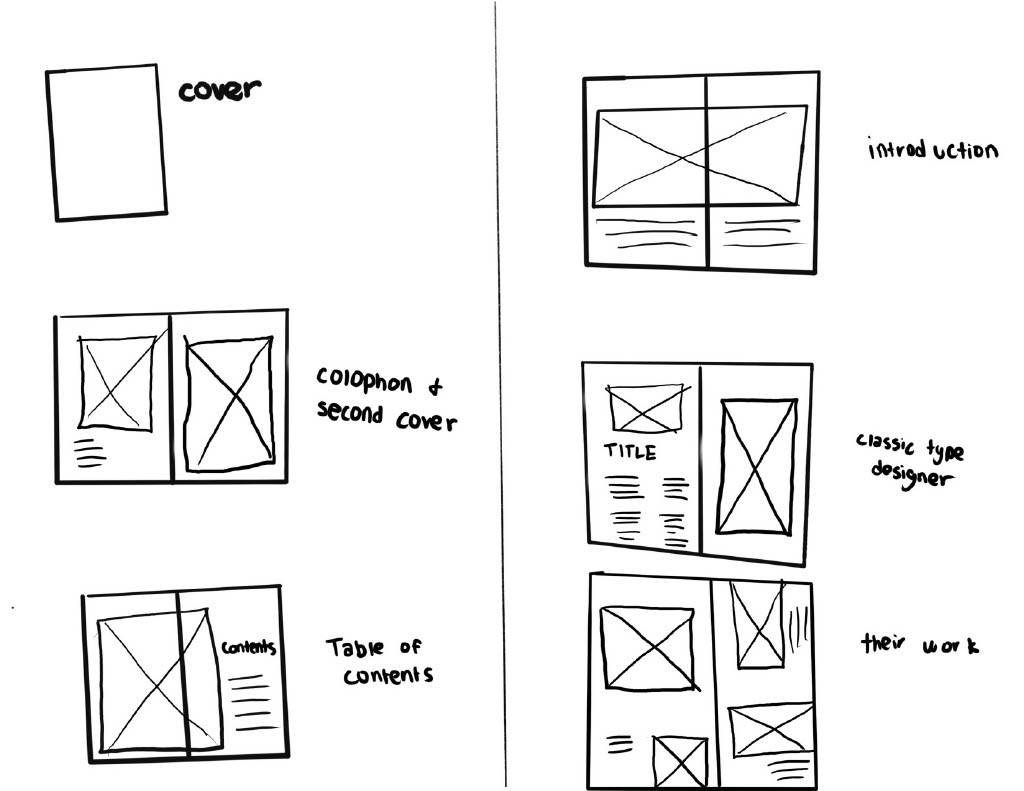 cover
colophon &
second cover
contents
Table of
contents
introduction
TITLE
classic type
designer
their work